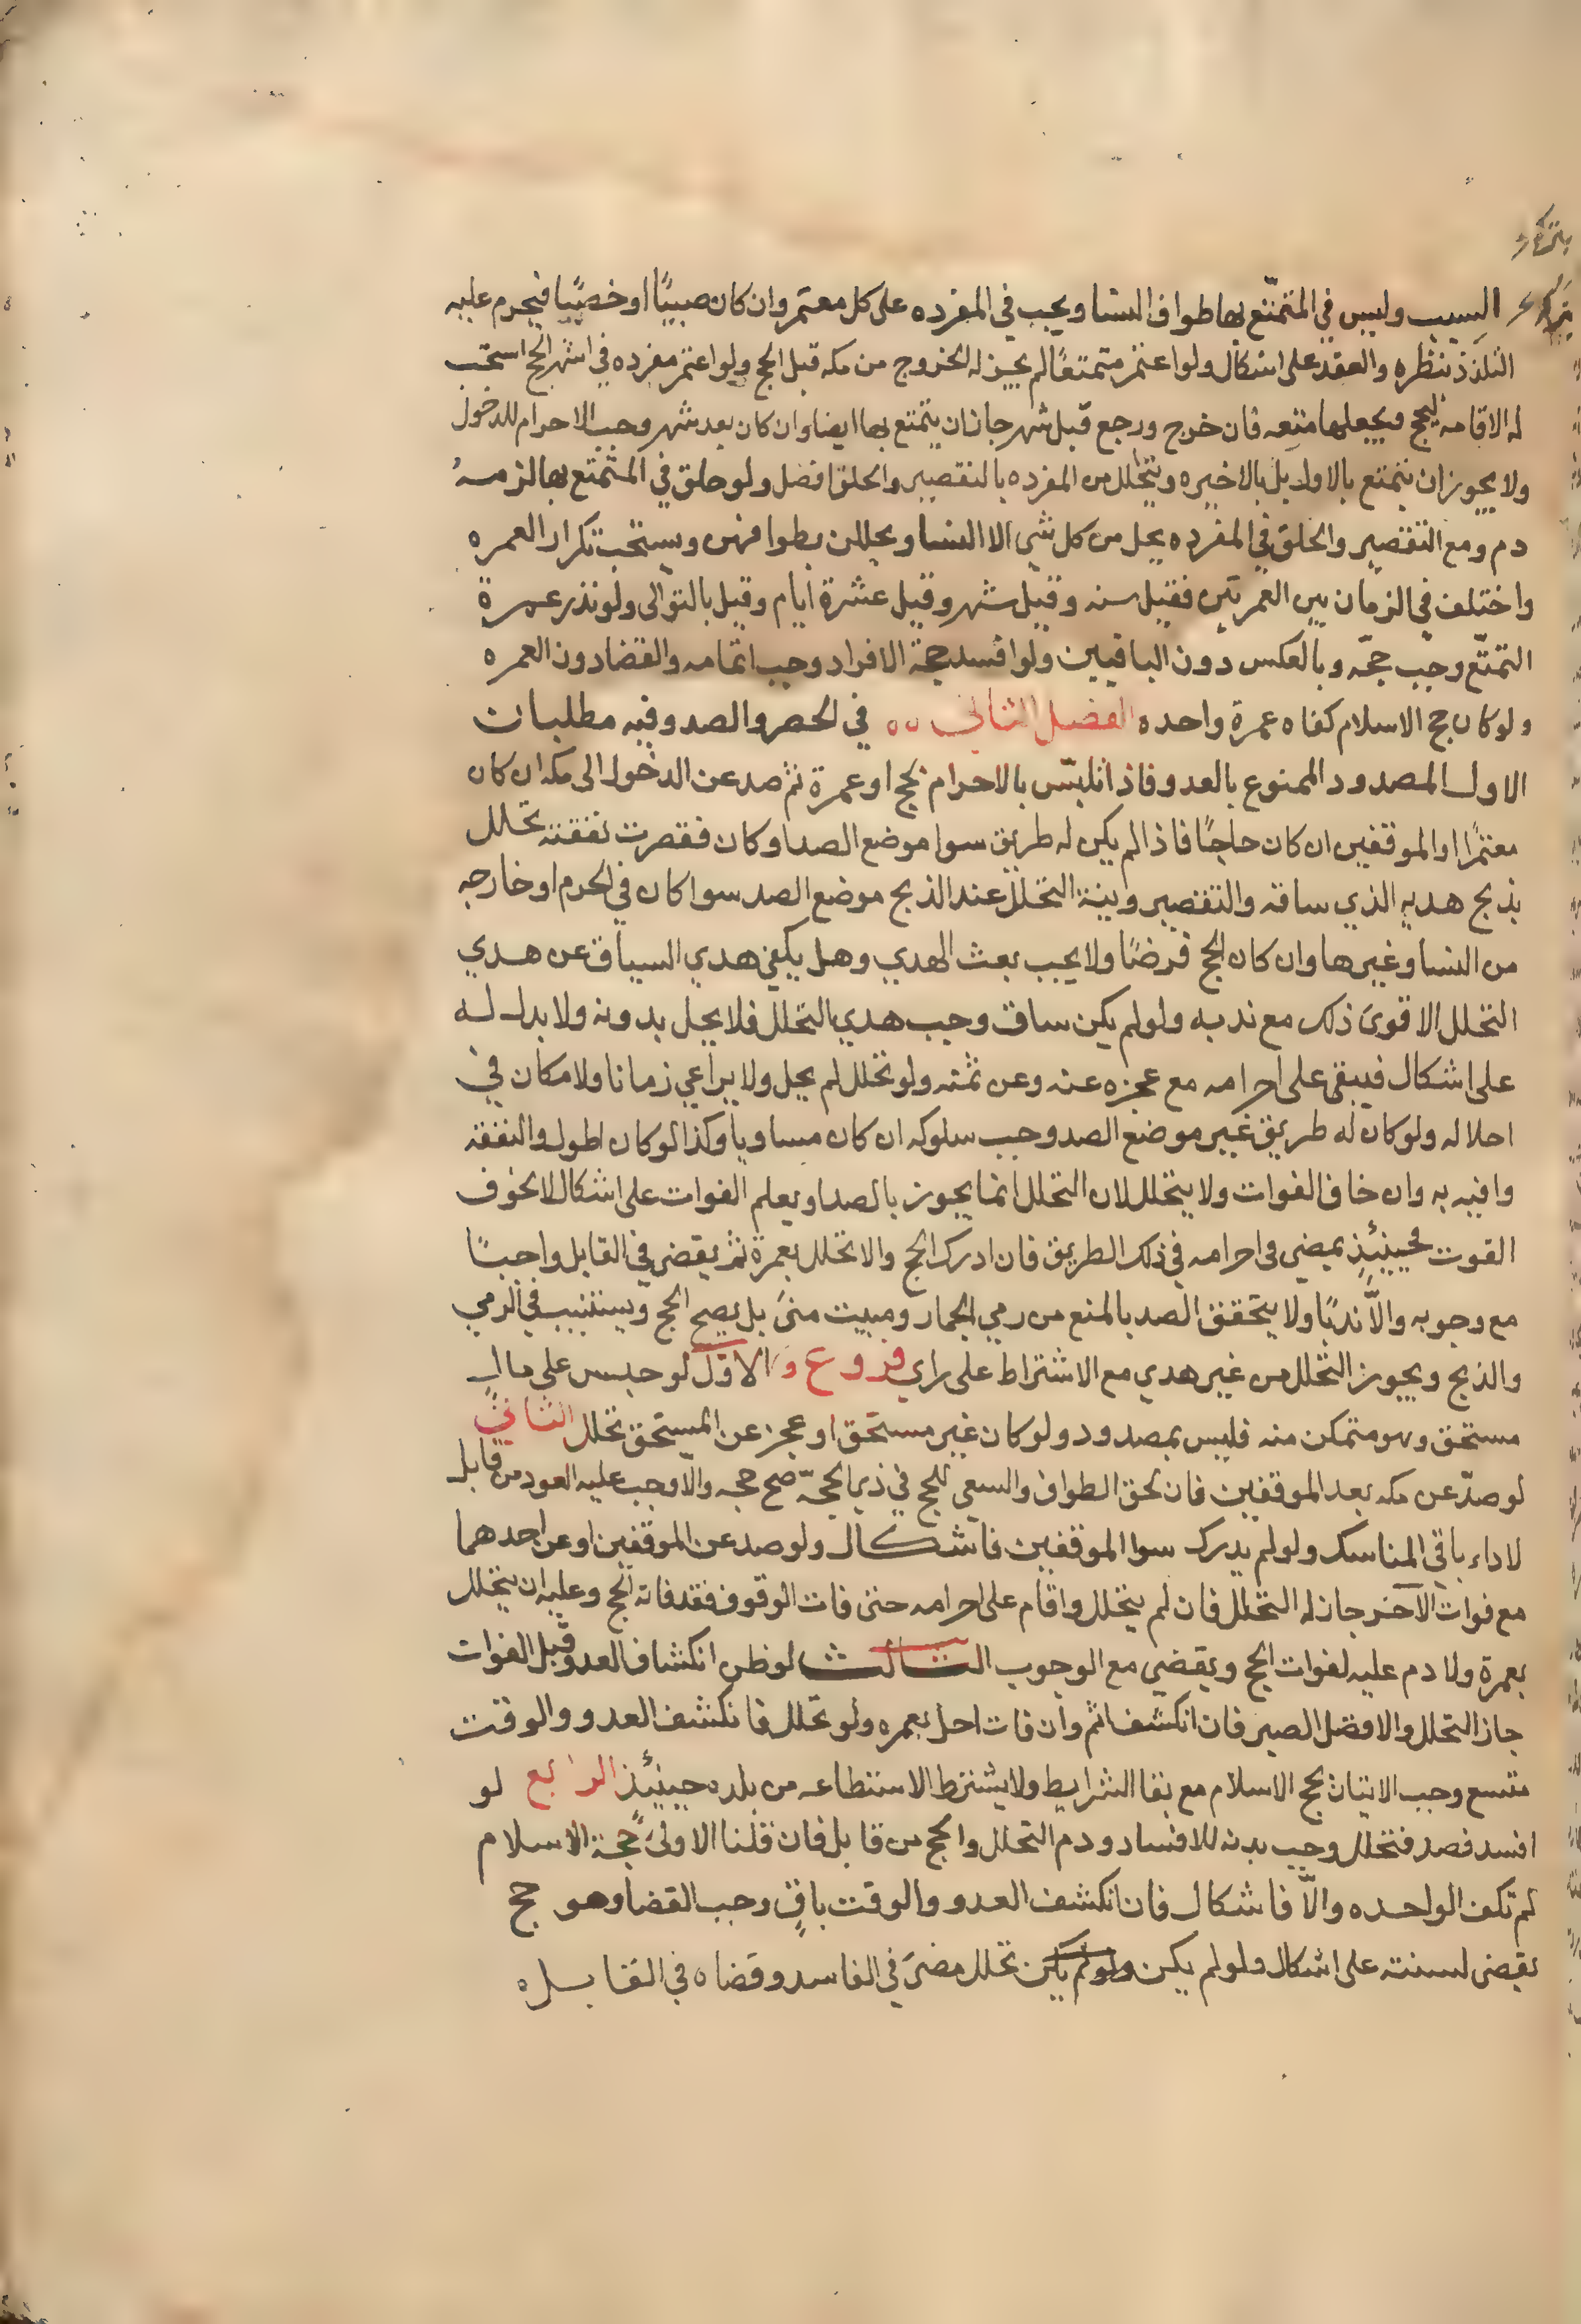 السبب وليس في المتمتع بها طواف النسا ويجب في المفرده على كل معتمر وان كان صبيًا او خصيًا فيحرم عليه
التلذذ بنظره والعقد على اشكال ولو اعتمر متمتعًا لم يجز له الخروج من مكه قبل الحج ولو اعتمر مفرده في اشهر الحج استحب
له الاقامه للحج ويجعلها متعه فان خرج ورجع قبل شهر جاز ان يتمتع بها ايضا وان كان بعد شهر وجب الاحرام للدخول
ولا يجوز ان يتمتع بالاولى بل بالاخيره ويتحلل من المفرده بالتقصير والحلق افضل ولو حلق في المتمتع بها لزمه
دم ومع التقصير والحلق في المفرده يحل من كل شي الا النسا ويحللن بطوافهن ويستحب تكرار العمره
واختلف في الزمان بين العمرتين فقيل سنه وقيل شهر وقيل عشرة ايام وقيل بالتوالى ولو نذر عمرة
التمتّع وجب حجّه وبالعكس دون الباقيين ولو افسد حجة الافراد وجب اتمامه والقضا دون العمره
ولو كان حج الاسلام كفاه عمرة واحده الفصل الثاني ٥٥ في الحصر والصد وفيه مطلبان
الاول المصدود الممنوع بالعدو فاذا تلبّس بالاحرام لحج او عمرة ثم صد عن الدخول الى مكه ان كان
معتمرًا او الموقفين ان كان حاجًا فاذا لم يكن له طريق سوا موضع الصد او كان فقصرت نفقته تحلل
بذبح هديه الذي ساقه والتقصير وبنية التحلل عند الذبح موضع الصد سوا كان في الحرم او خارجه
من النسا وغيرها وان كان الحج فرضًا ولا يجب بعث الهدي وهل يكفي هدي السياق عن هدي
التحلل الاقوى ذلك مع ندبه ولو لم يكن ساق وجب هدي التحلل فلا يحل بدونه ولا بدل له
على اشكال فيبقى على احرامه مع عجزه عنه وعن ثمنه ولو تحلل لم يحل ولا يراعي زمانا ولا مكان في
احلاله ولو كان له طريق غير موضع الصد وجب سلوكه ان كان مساويا وكذا لو كان اطول والنفقه
وافيه به وان خاف الفوات ولا يتحلل لان التحلل انما يجوز بالصد او يعلم الفوات على اشكال لا بخوف
الفوت فحينئذٍ يمضي في احرامه في ذلك الطريق فان ادرك الحج والا تحلل بعمرة ثم يقضي في القابل واجبًا
مع وجوبه والّا ندبًا ولا يتحقق الصد بالمنع من رمي الجمار ومبيت منىً بل يصح الحج ويستنيب في الرمي
والذبح ويجوز التحلل من غير هدي مع الاشتراط على راي فروع و الاوّل لو حبس على مال
مستحق وهو متمكن منه فليس بمصدود ولو كان غير مستحق او عجز عن المستحق تحلل الثاني
لو صدّ عن مكه بعد الموقفين فان لحق الطواف والسعي للحج في ذي الحجّة صح حجه والا وجب عليه العود من قابل
لاداء باقي المناسك ولو لم يدرك سوا الموقفين فاشكال ولو صد عن الموقفين او عن احدهما
مع فوات الآخر جاز له التحلل فان لم يتحلل واقام على احرامه حتى فات الوقوف فقد فاته الحج وعليه ان يتحلل
بعمرة ولا دم عليه لفوات الحج ويقضي مع الوجوب الثالث لو ظن انكشاف العدو قبل الفوات
جاز التحلل والافضل الصبر فان انكشف اتم وان فات احل بعمره ولو تحلل فانكشف العدو والوقت
متسع وجب الاتيان بحج الاسلام مع بقا الشرايط ولا يشترط الاستطاعه من بلده حينئذٍ الرابع لو
افسد فصد فتحلل وجب بدنه للافساد ودم التحلل والحج من قابل فان قلنا الاولىٰ حجة الاسلام
لم تكف الواحده والّا فاشكال فان انكشف العدو والوقت باقٍ وجب القضا وهو حج
يقضي لسنته على اشكال ولو لم يكن ولو لم يكن تحلل مضىٰ في الفاسد وقضاه في القابل ٥